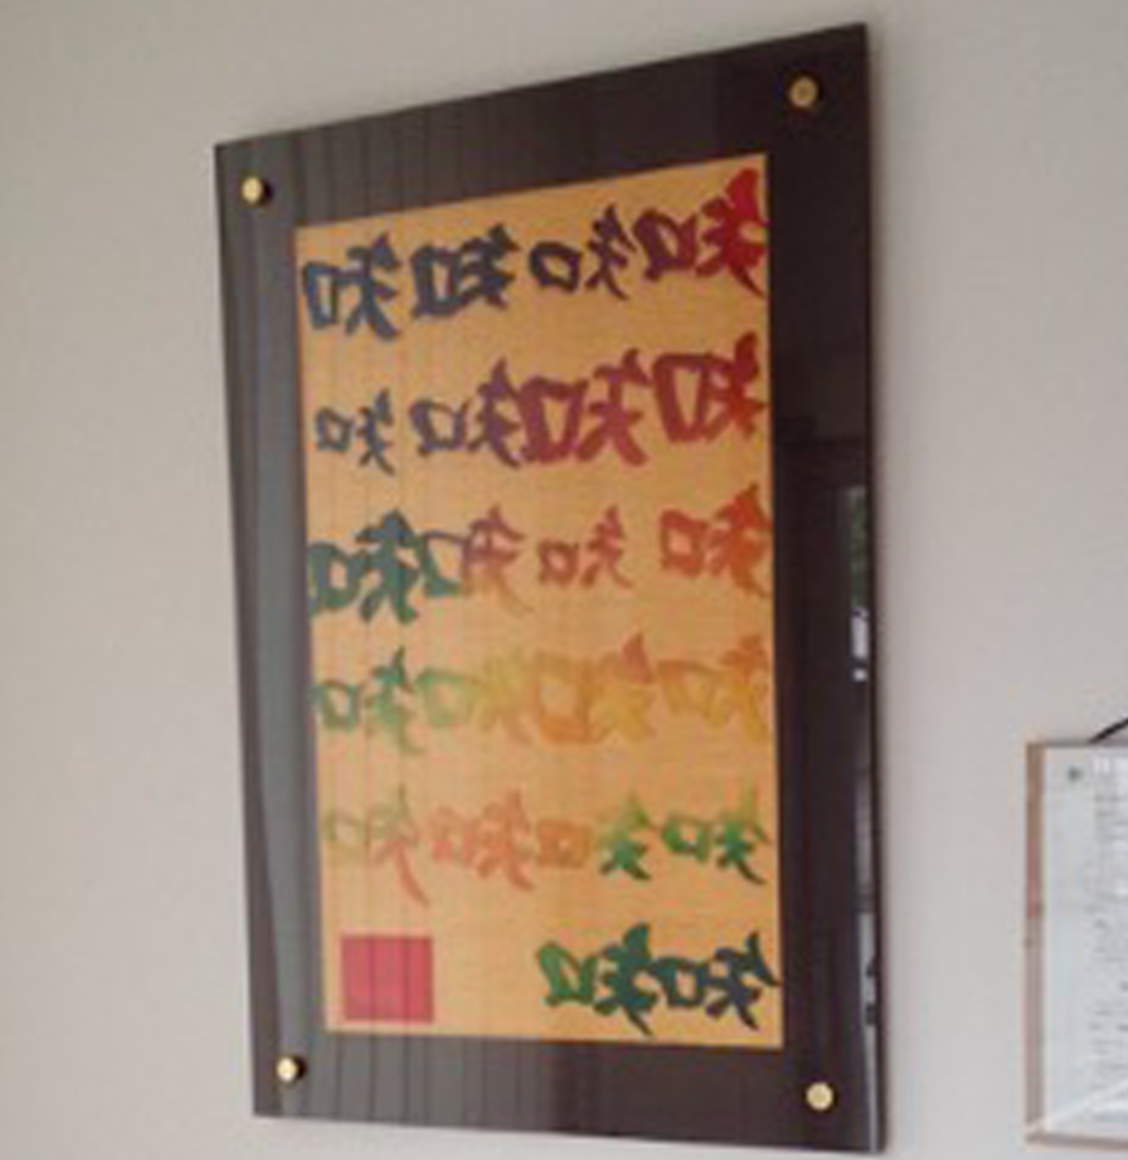 知知知知
知知知知
知知知知
知知知知
知知知知
知知